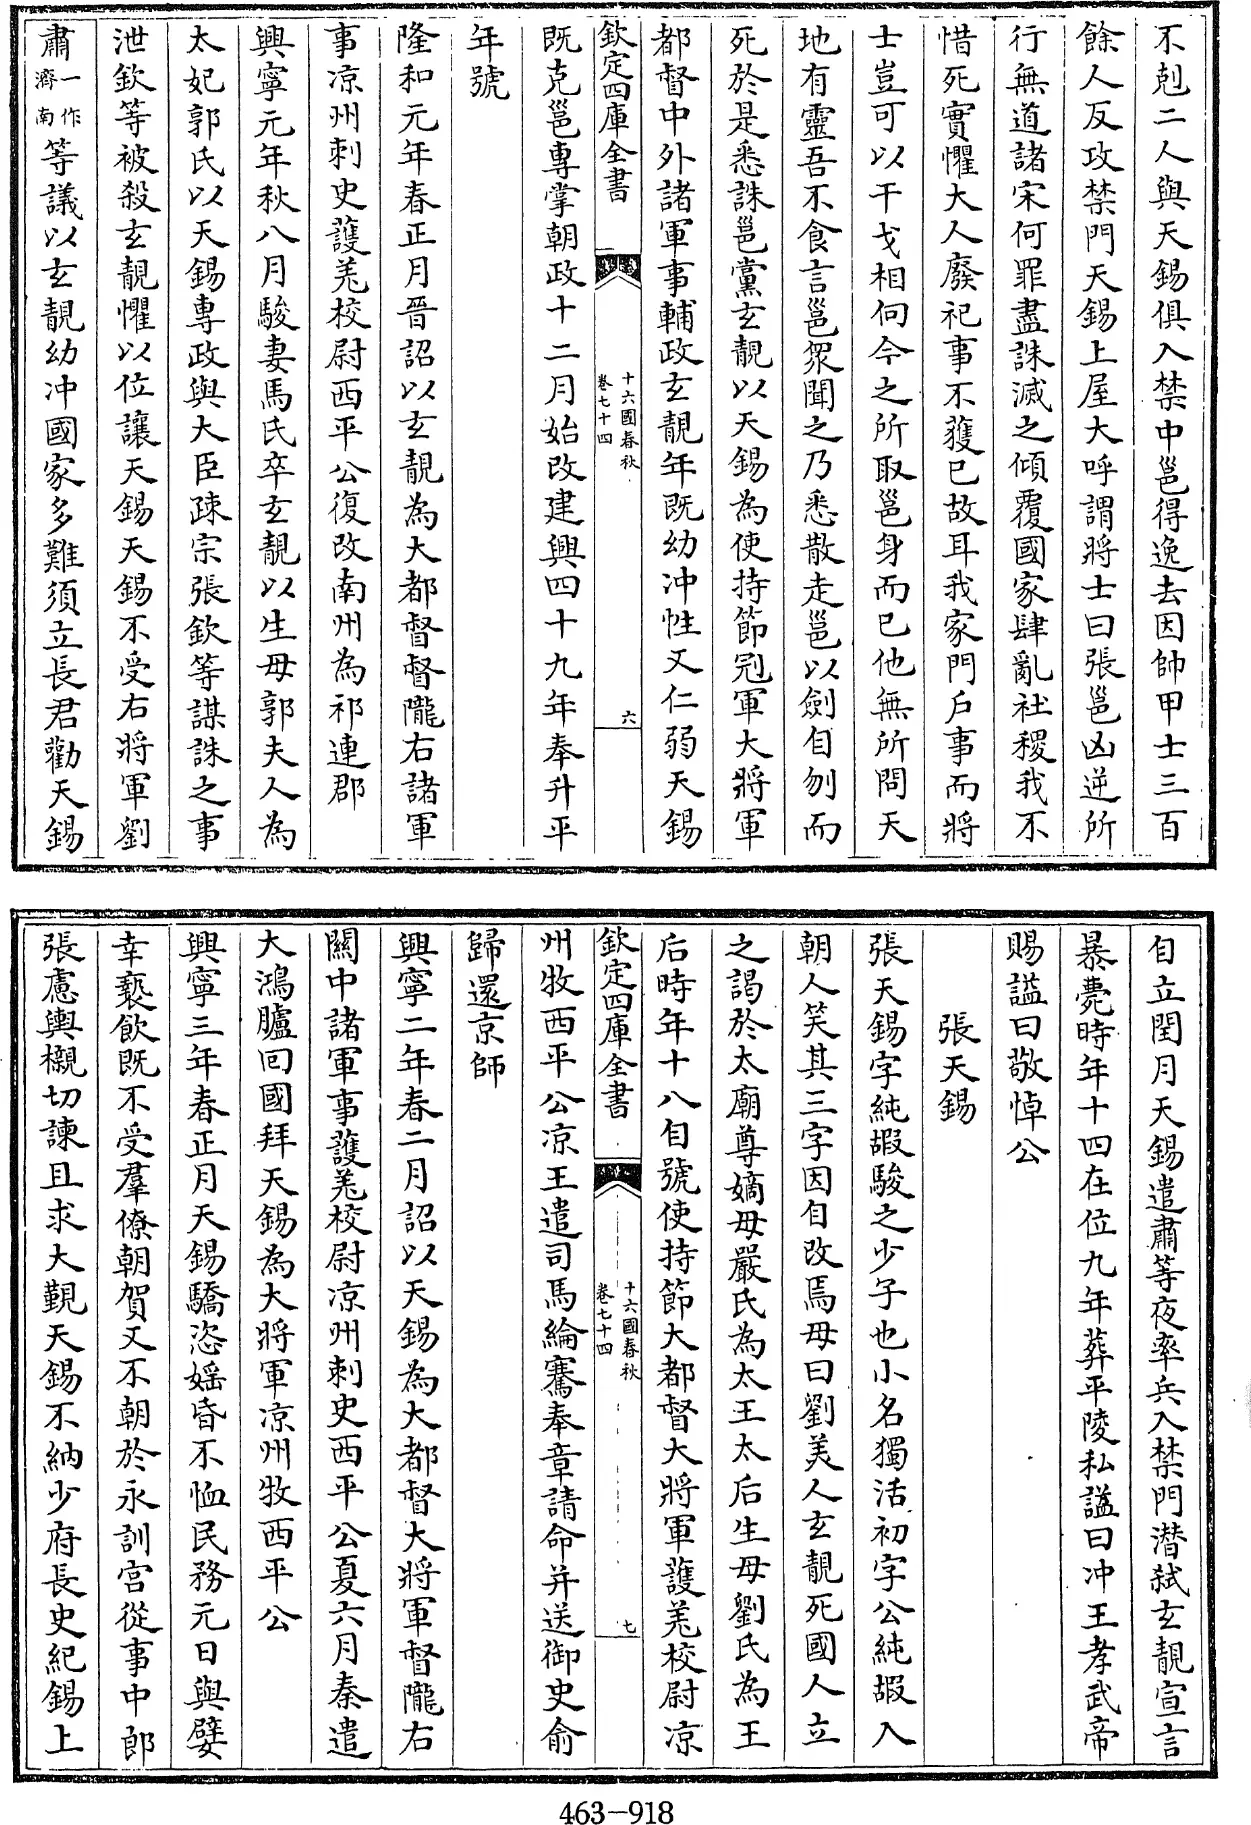 不剋二人與天錫俱入禁中邕得逸去因帥甲士三百
餘人反攻禁門天錫上屋大呼謂將士曰張邕凶逆所
行無道諸宋何罪盡誅滅之傾覆國家肆亂社稷我不
惜死實懼大人廢祀事不獲已故耳我家門戶事而將
士豈可以干戈相向今之所取邕身而已他無所問天
地有靈吾不食言邕眾聞之乃悉散走邕以劍自刎而
死於是悉誅邕黨玄靚以天錫為使持節冠軍大將軍
都督中外諸軍事輔政玄靚年既幼冲性又仁弱天錫
欽定四庫全書
十六國春秋
卷七十四
六
既克邕專掌朝政十二月始改建興四十九年奉升平
年號
隆和元年春正月晉詔以玄靚為大都督督隴右諸軍
事凉州刺史護羌校尉西平公復改南州為祁連郡
興寧元年秋八月駿妻馬氏卒玄靚以生母郭夫人為
太妃郭氏以天錫專政與大臣疎宗張欽等謀誅之事
泄欽等被殺玄靚懼以位讓天錫天錫不受右將軍劉
肅一作濟南等議以玄靚幼冲國家多難須立長君勸天錫
自立閏月天錫遣肅等夜率兵入禁門潛弑玄靚宣言
暴薨時年十四在位九年葬平陵私諡曰冲王孝武帝
賜諡曰敬悼公
張天錫
張天錫字純嘏駿之少子也小名獨活初字公純嘏入
朝人笑其三字因自改焉母曰劉美人玄靚死國人立
之謁於太廟尊嫡母嚴氏為太王太后生母劉氏為王
后時年十八自號使持節大都督大將軍護羌校尉凉
欽定四庫全書
十六國春秋
卷七十四
七
州牧西平公凉王遣司馬綸騫奉章請命并送御史俞
歸還京師
興寧二年春二月詔以天錫為大都督大將軍督隴右
關中諸軍事護羌校尉凉州刺史西平公夏六月秦遣
大鴻臚回國拜天錫為大將軍凉州牧西平公
興寧三年春正月天錫驕恣媱昏不恤民務元日與嬖
幸褻飲既不受羣僚朝賀又不朝於永訓宮從事中郎
張慮輿櫬切諫且求大覲天錫不納少府長史紀錫上
463-918